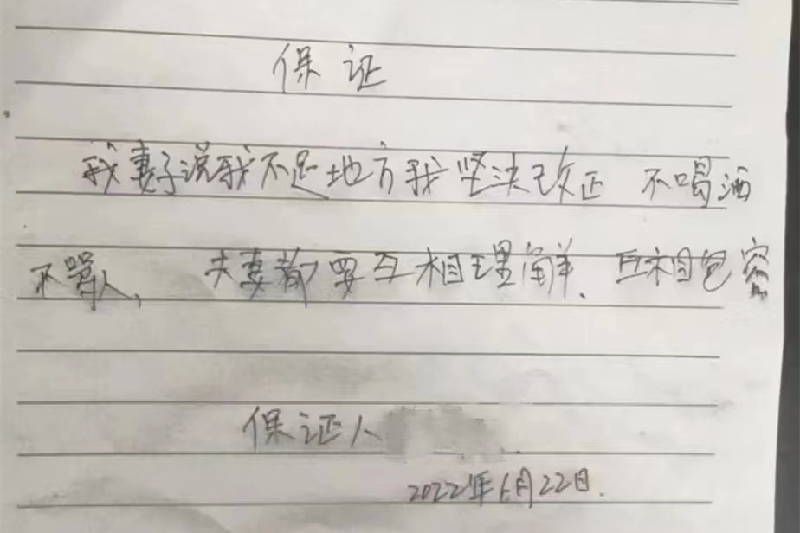 保证
我妻子说我不足地方我坚决改正 不喝酒
不骂人、 夫妻都要互相理解、互相包容
保证人
2022年6月22日.